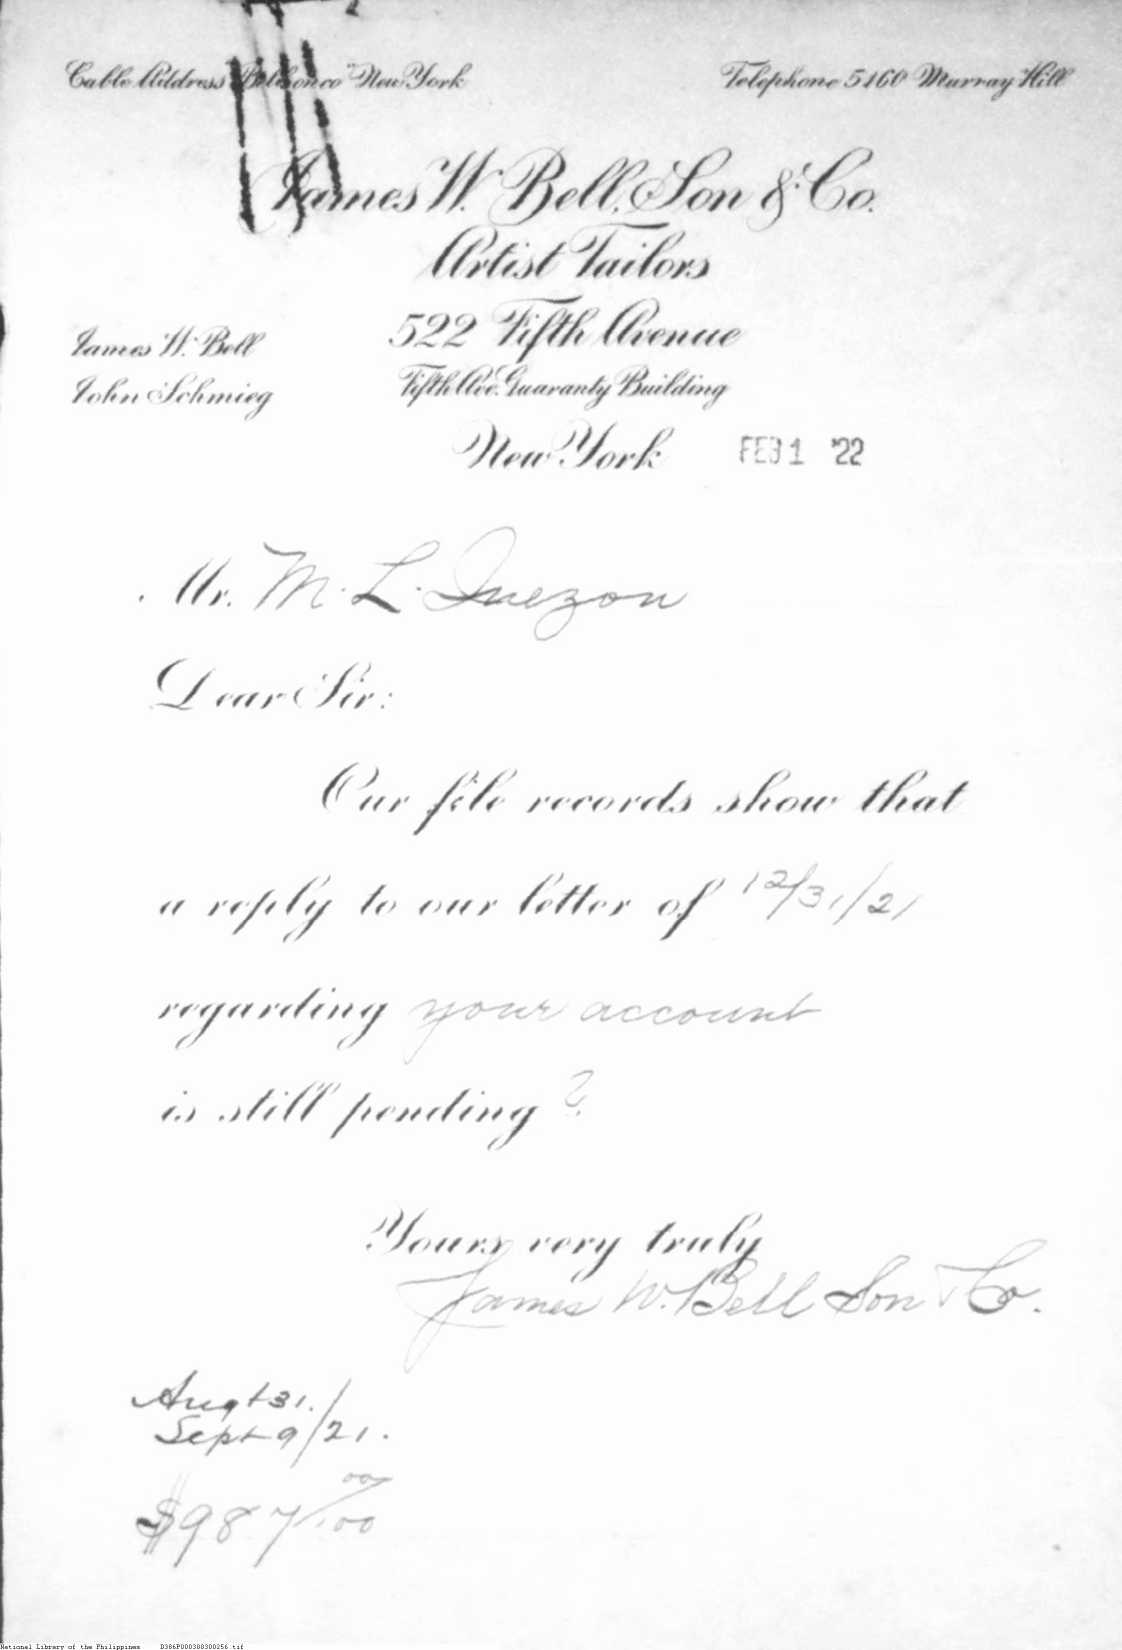 Cable Address "Bellsonco" New York
Telephone 5160 Murray Hill
James W. Bell, Son & Co.
Artist Tailors
522 Fifth Avenue
James W. Bell
Fifth Ave. Guaranty Building
John Schmieg
New York FEB 1 '22
Mr. M. L. Quezon
Dear Sir:
Our file records show that
a reply to our letter of 12/31/21
regarding your account
is still pending?
Yours very truly
James W. Bell Son & Co.
Augt 31.
Sept 9/21.
$987 00/00
National Library of the Philippines D386P000300300256.tif